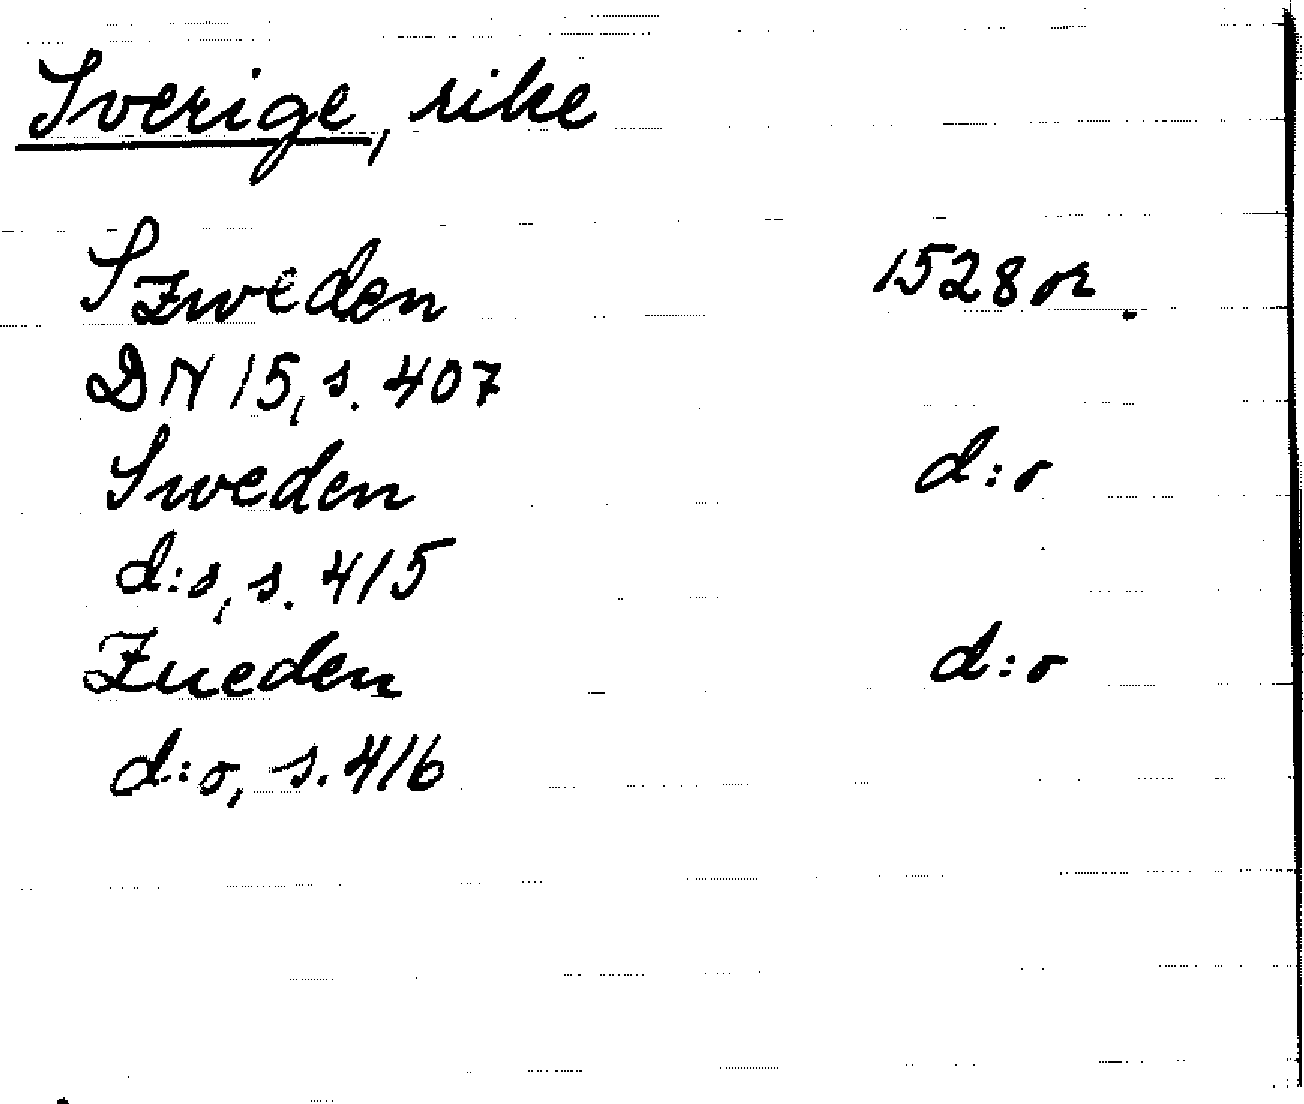 Sverige, rike
Szweden 1528 or.
DN 15, s. 407
Sweden d:o
d:s, s. 415
Zueden d:o
d:o, s. 416